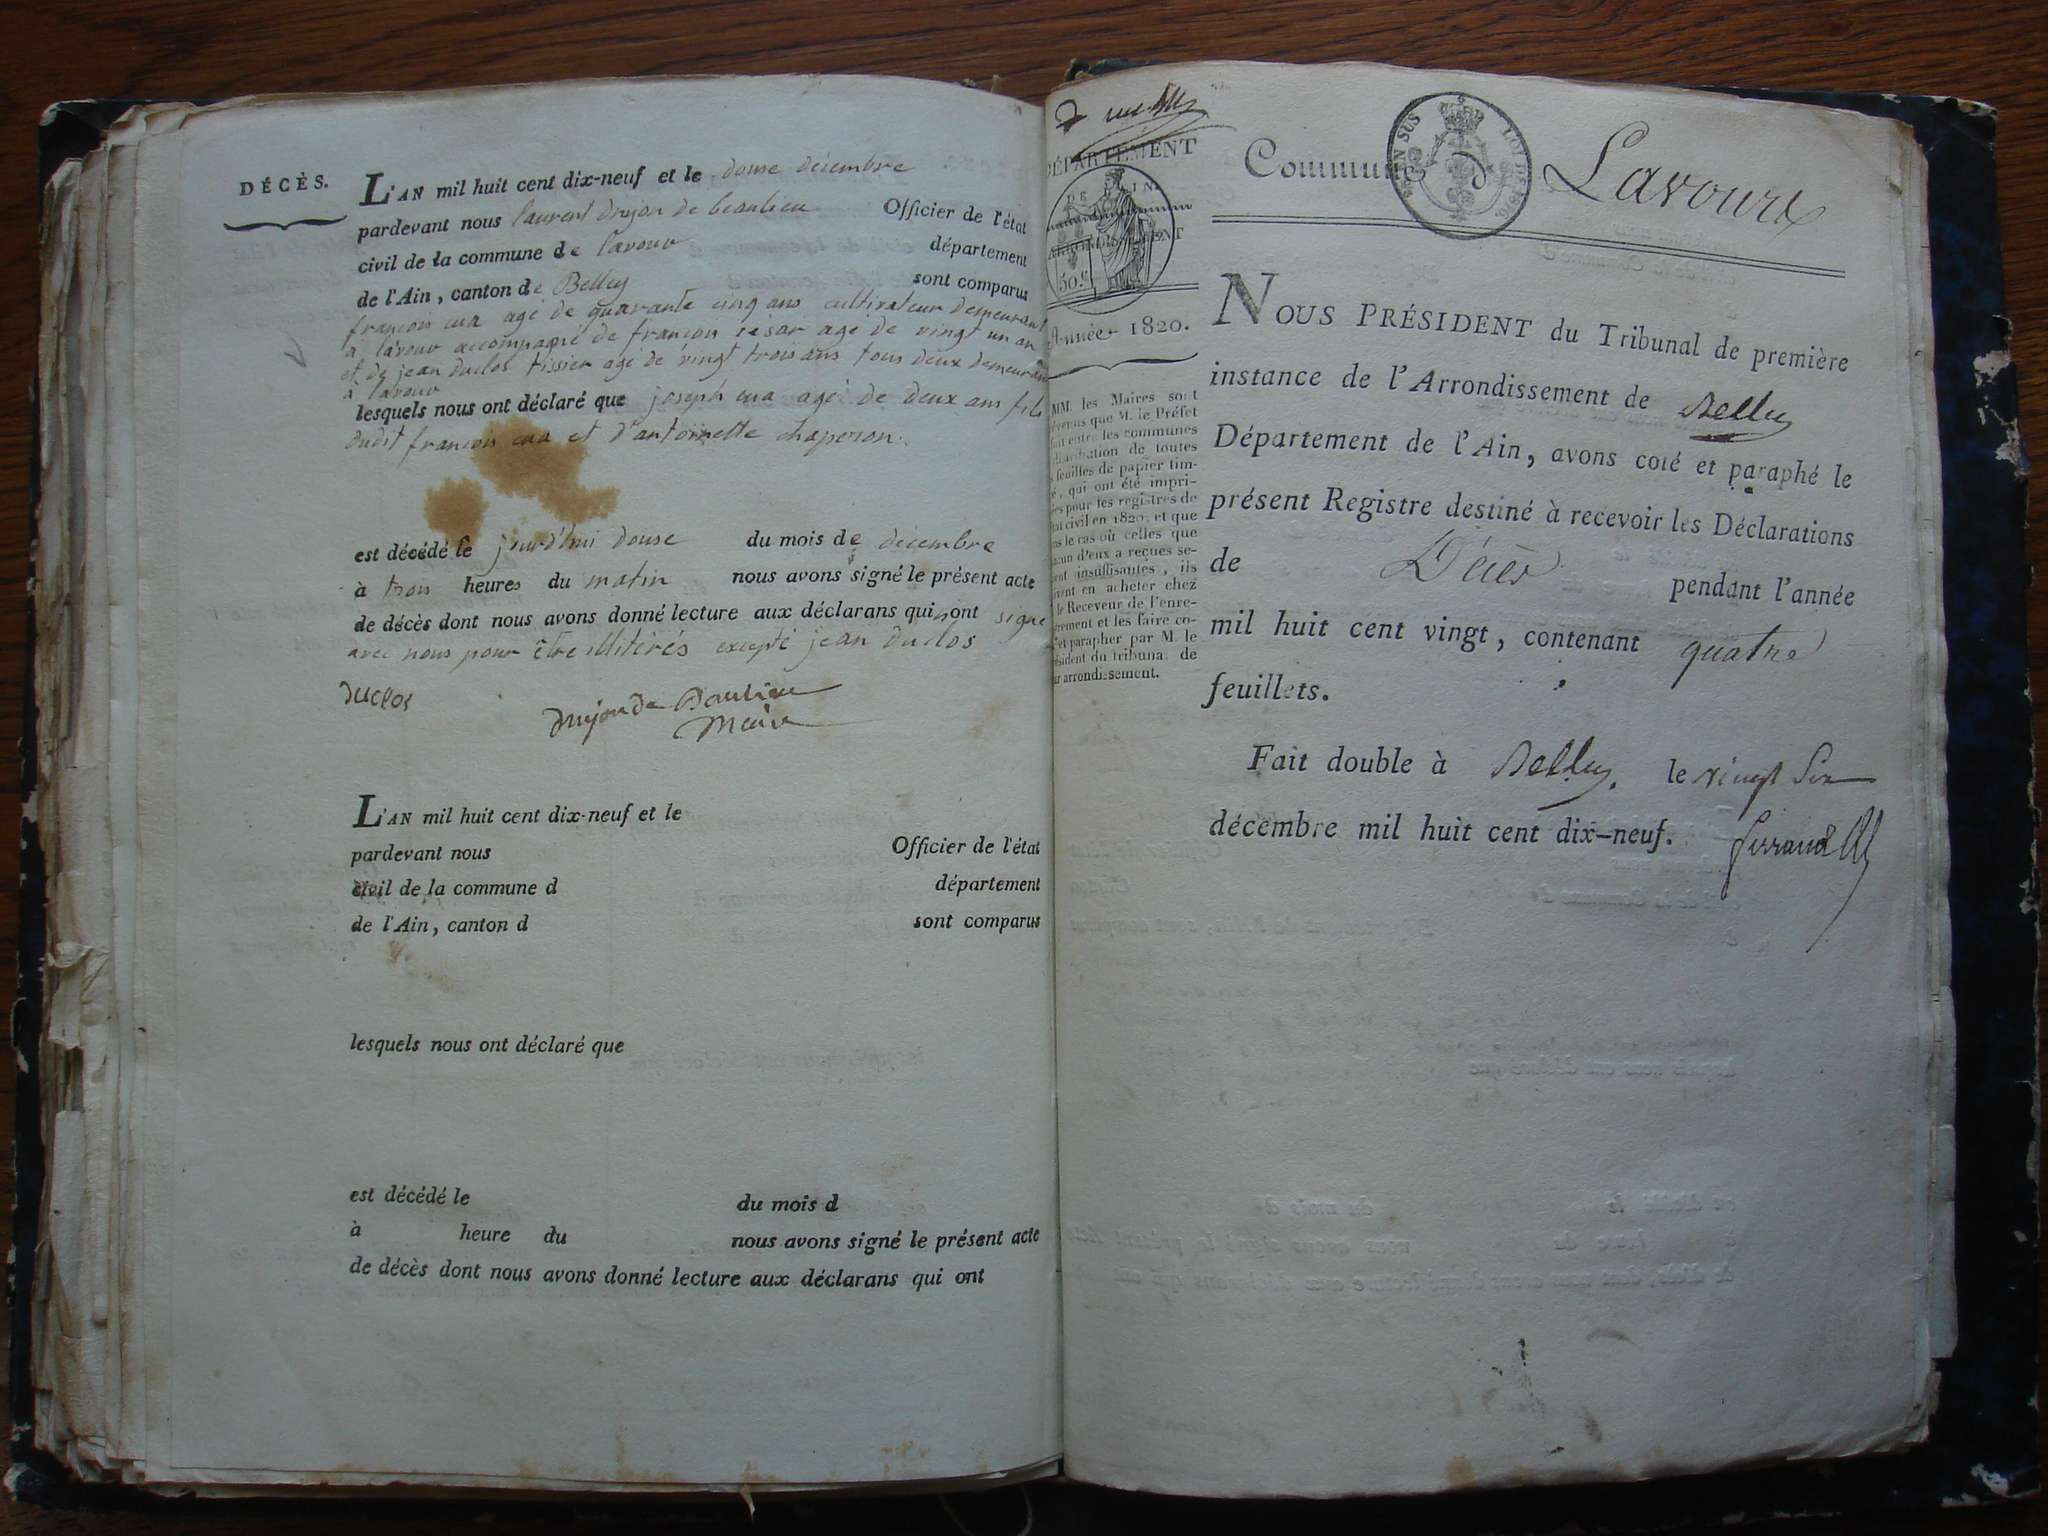 DÉCÈS.
L'AN mil huit cent dix-neuf et le douse décembre
pardevant nous laurent drujon de beaulieu Officier de l'état
civil de la commune de lavour département
de l'Ain, canton de Belley sont comparus
francois cua agé de quarante cinq ans cultivateur demeurant
à lavour accompagné de francois cesar agé de vingt un an
et de jean duclos tissier agé de vingt trois ans tous deux demeurant
à lavour
lesquels nous ont déclaré que joseph cua agé de deux ans fils
dudit francois cua et d'antoinette chaperon.
est décédé le jourd'hui douse du mois de décembre
à trois heures du matin nous avons signé le présent acte
de décès dont nous avons donné lecture aux déclarans qui ont signé
avec nous pour être illitérés excepté jean duclos
duclos
drujon de Beaulieu
Maire
L'AN mil huit cent dix-neuf et le
pardevant nous Officier de l'état
civil de la commune d département
de l'Ain, canton d sont comparus
lesquels nous ont déclaré que
est décédé le du mois d
à heure du nous avons signé le présent acte
de décès dont nous avons donné lecture aux déclarans qui ont
DÉPARTEMENT
DE L'AIN
ARRONDISSEMENT
50 c.
Année 1820.
MM. les Maires sont
prévenus que M. le Préfet
fait entre les communes
distribution de toutes
feuilles de papier tim-
bré, qui ont été impri-
mées pour les registres de
l'état civil en 1820, et que
dans le cas où celles que
chacun d'eux a reçues se-
raient insuffisantes, ils
doivent en acheter chez
le Receveur de l'enre-
gistrement et les faire co-
ter et parapher par M. le
Président du tribunal de
leur arrondissement.
Commune d Lavours
EN SUS LOI DE 1816.
NOUS PRÉSIDENT du Tribunal de première
instance de l'Arrondissement de Belley
Département de l'Ain, avons coté et paraphé le
présent Registre destiné à recevoir les Déclarations
de Décès pendant l'année
mil huit cent vingt, contenant quatre
feuillets.
Fait double à Belley, le vingt Six
décembre mil huit cent dix-neuf. Ferrand